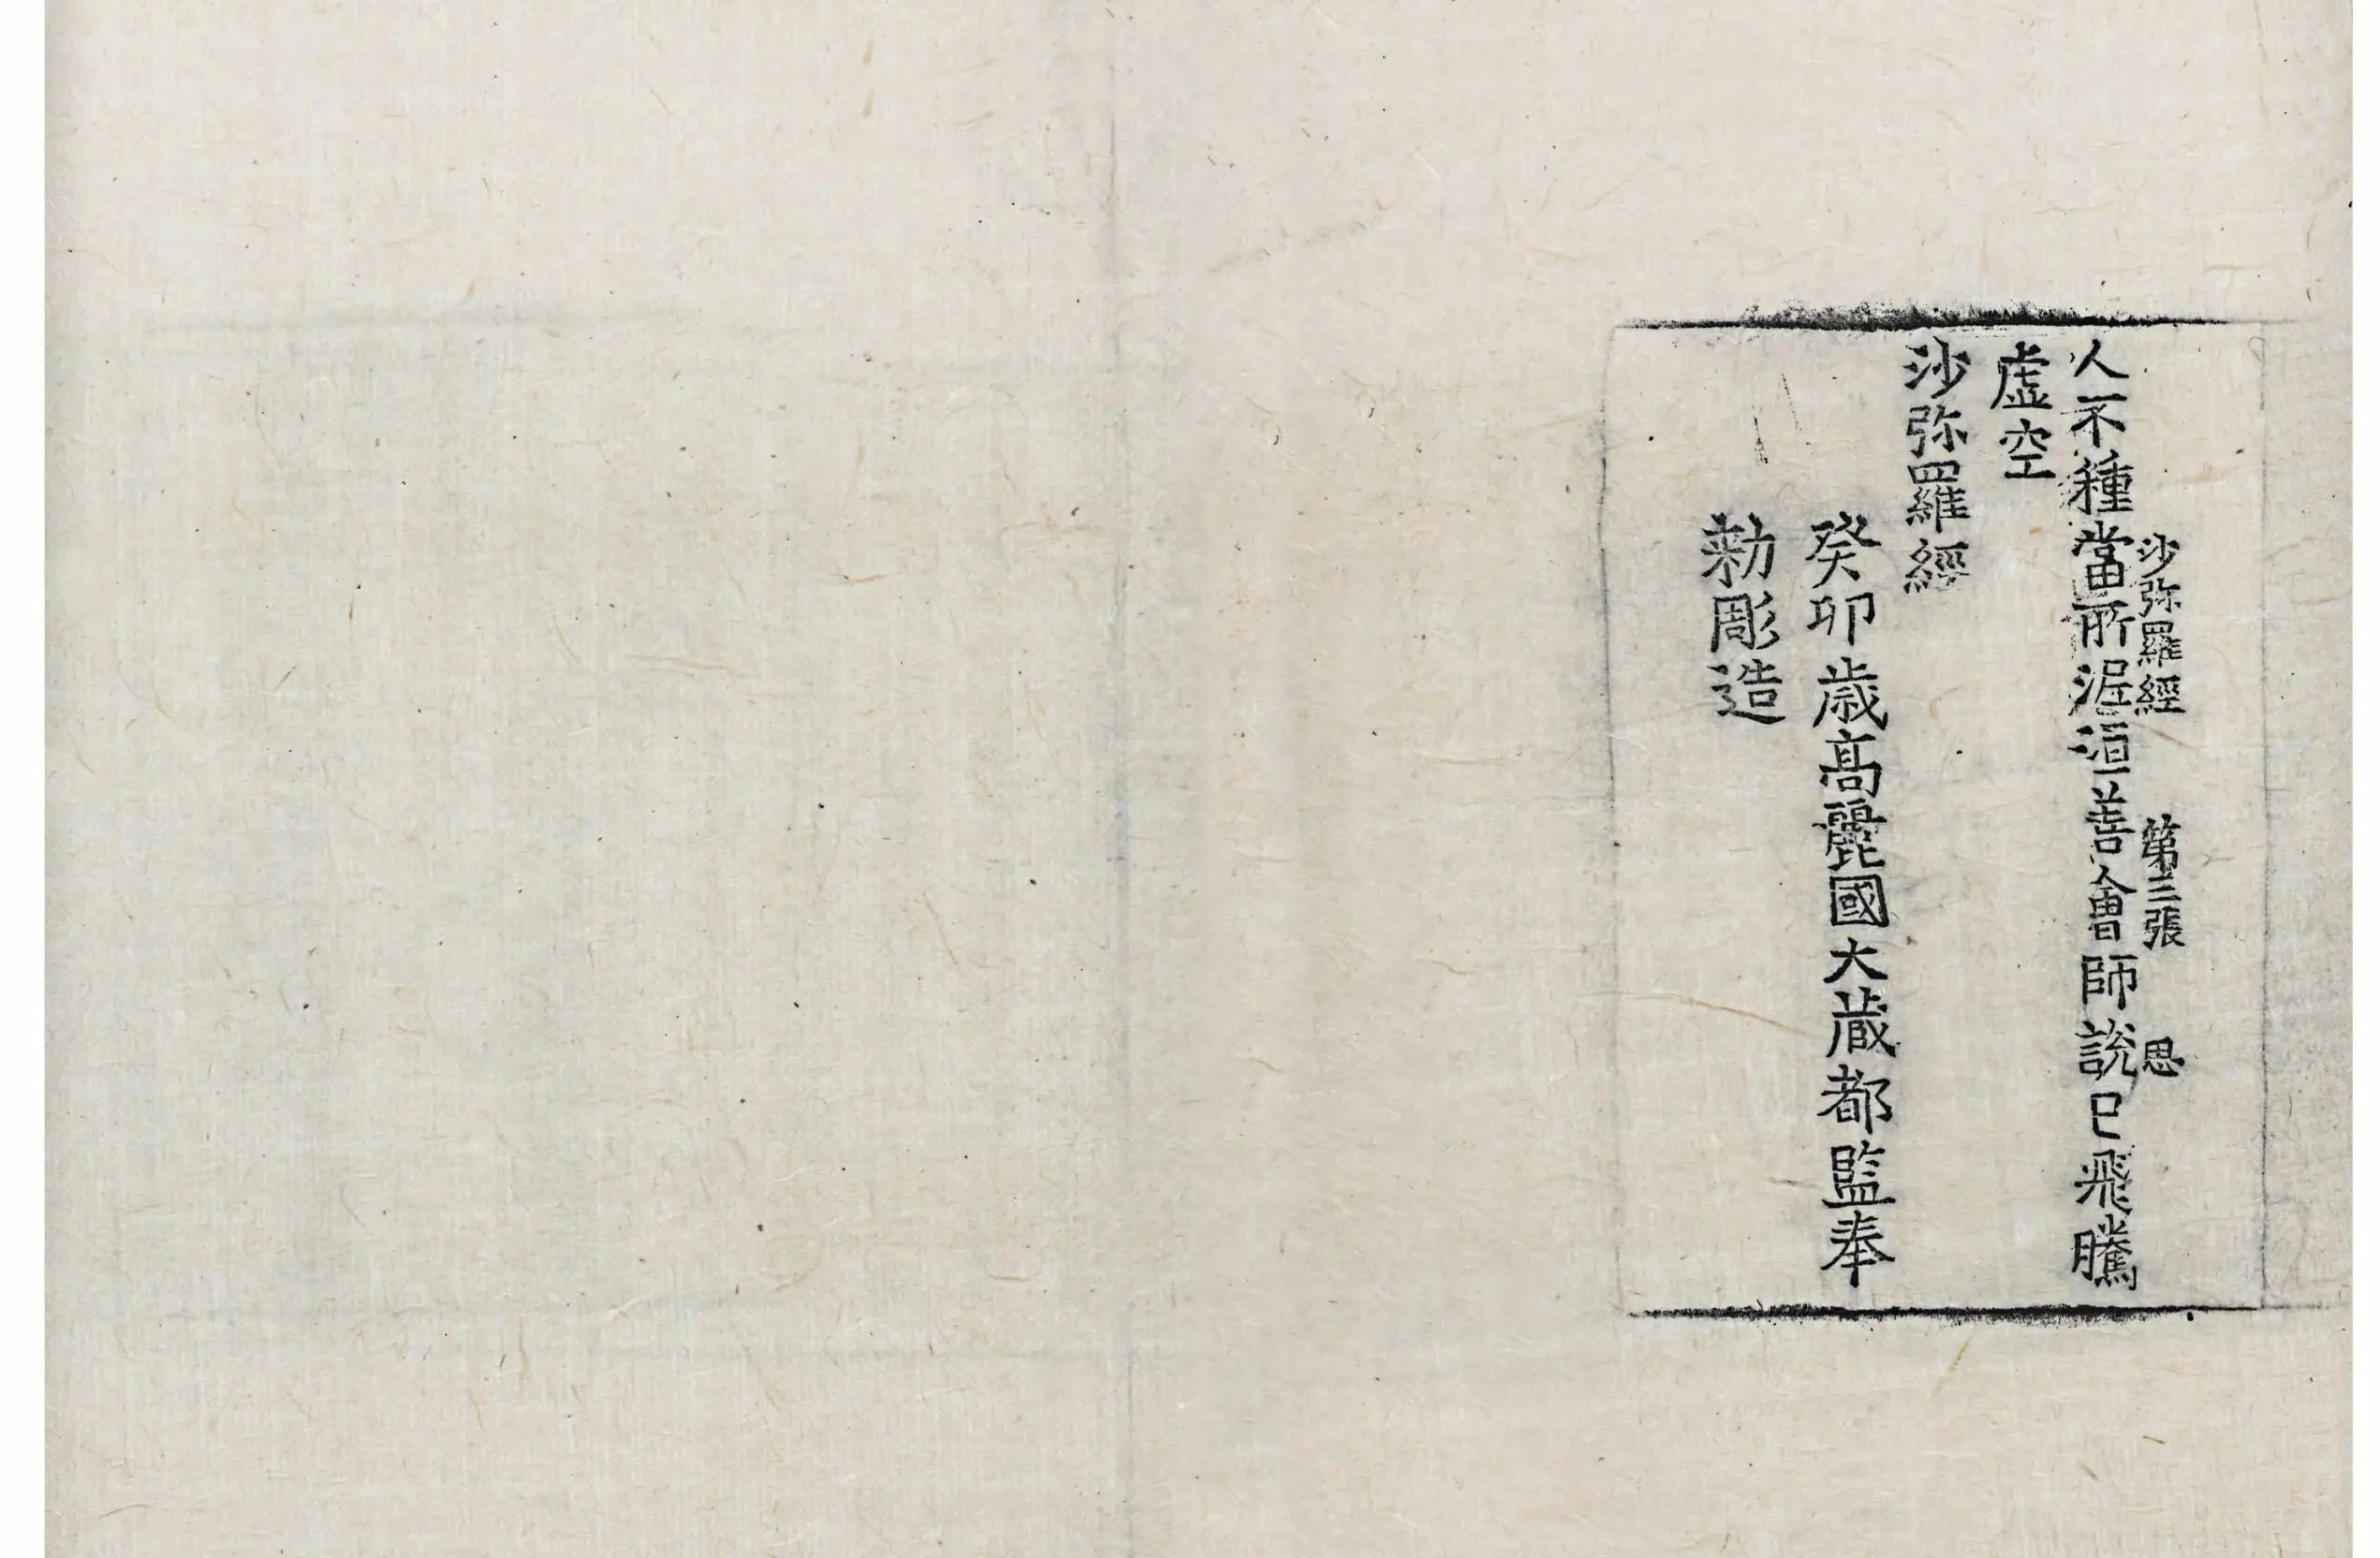 沙弥羅經 第三張 思
人不種當所泥洹善會師說已飛騰
虛空
沙弥羅經
癸卯歲高麗國大藏都監奉
勅彫造